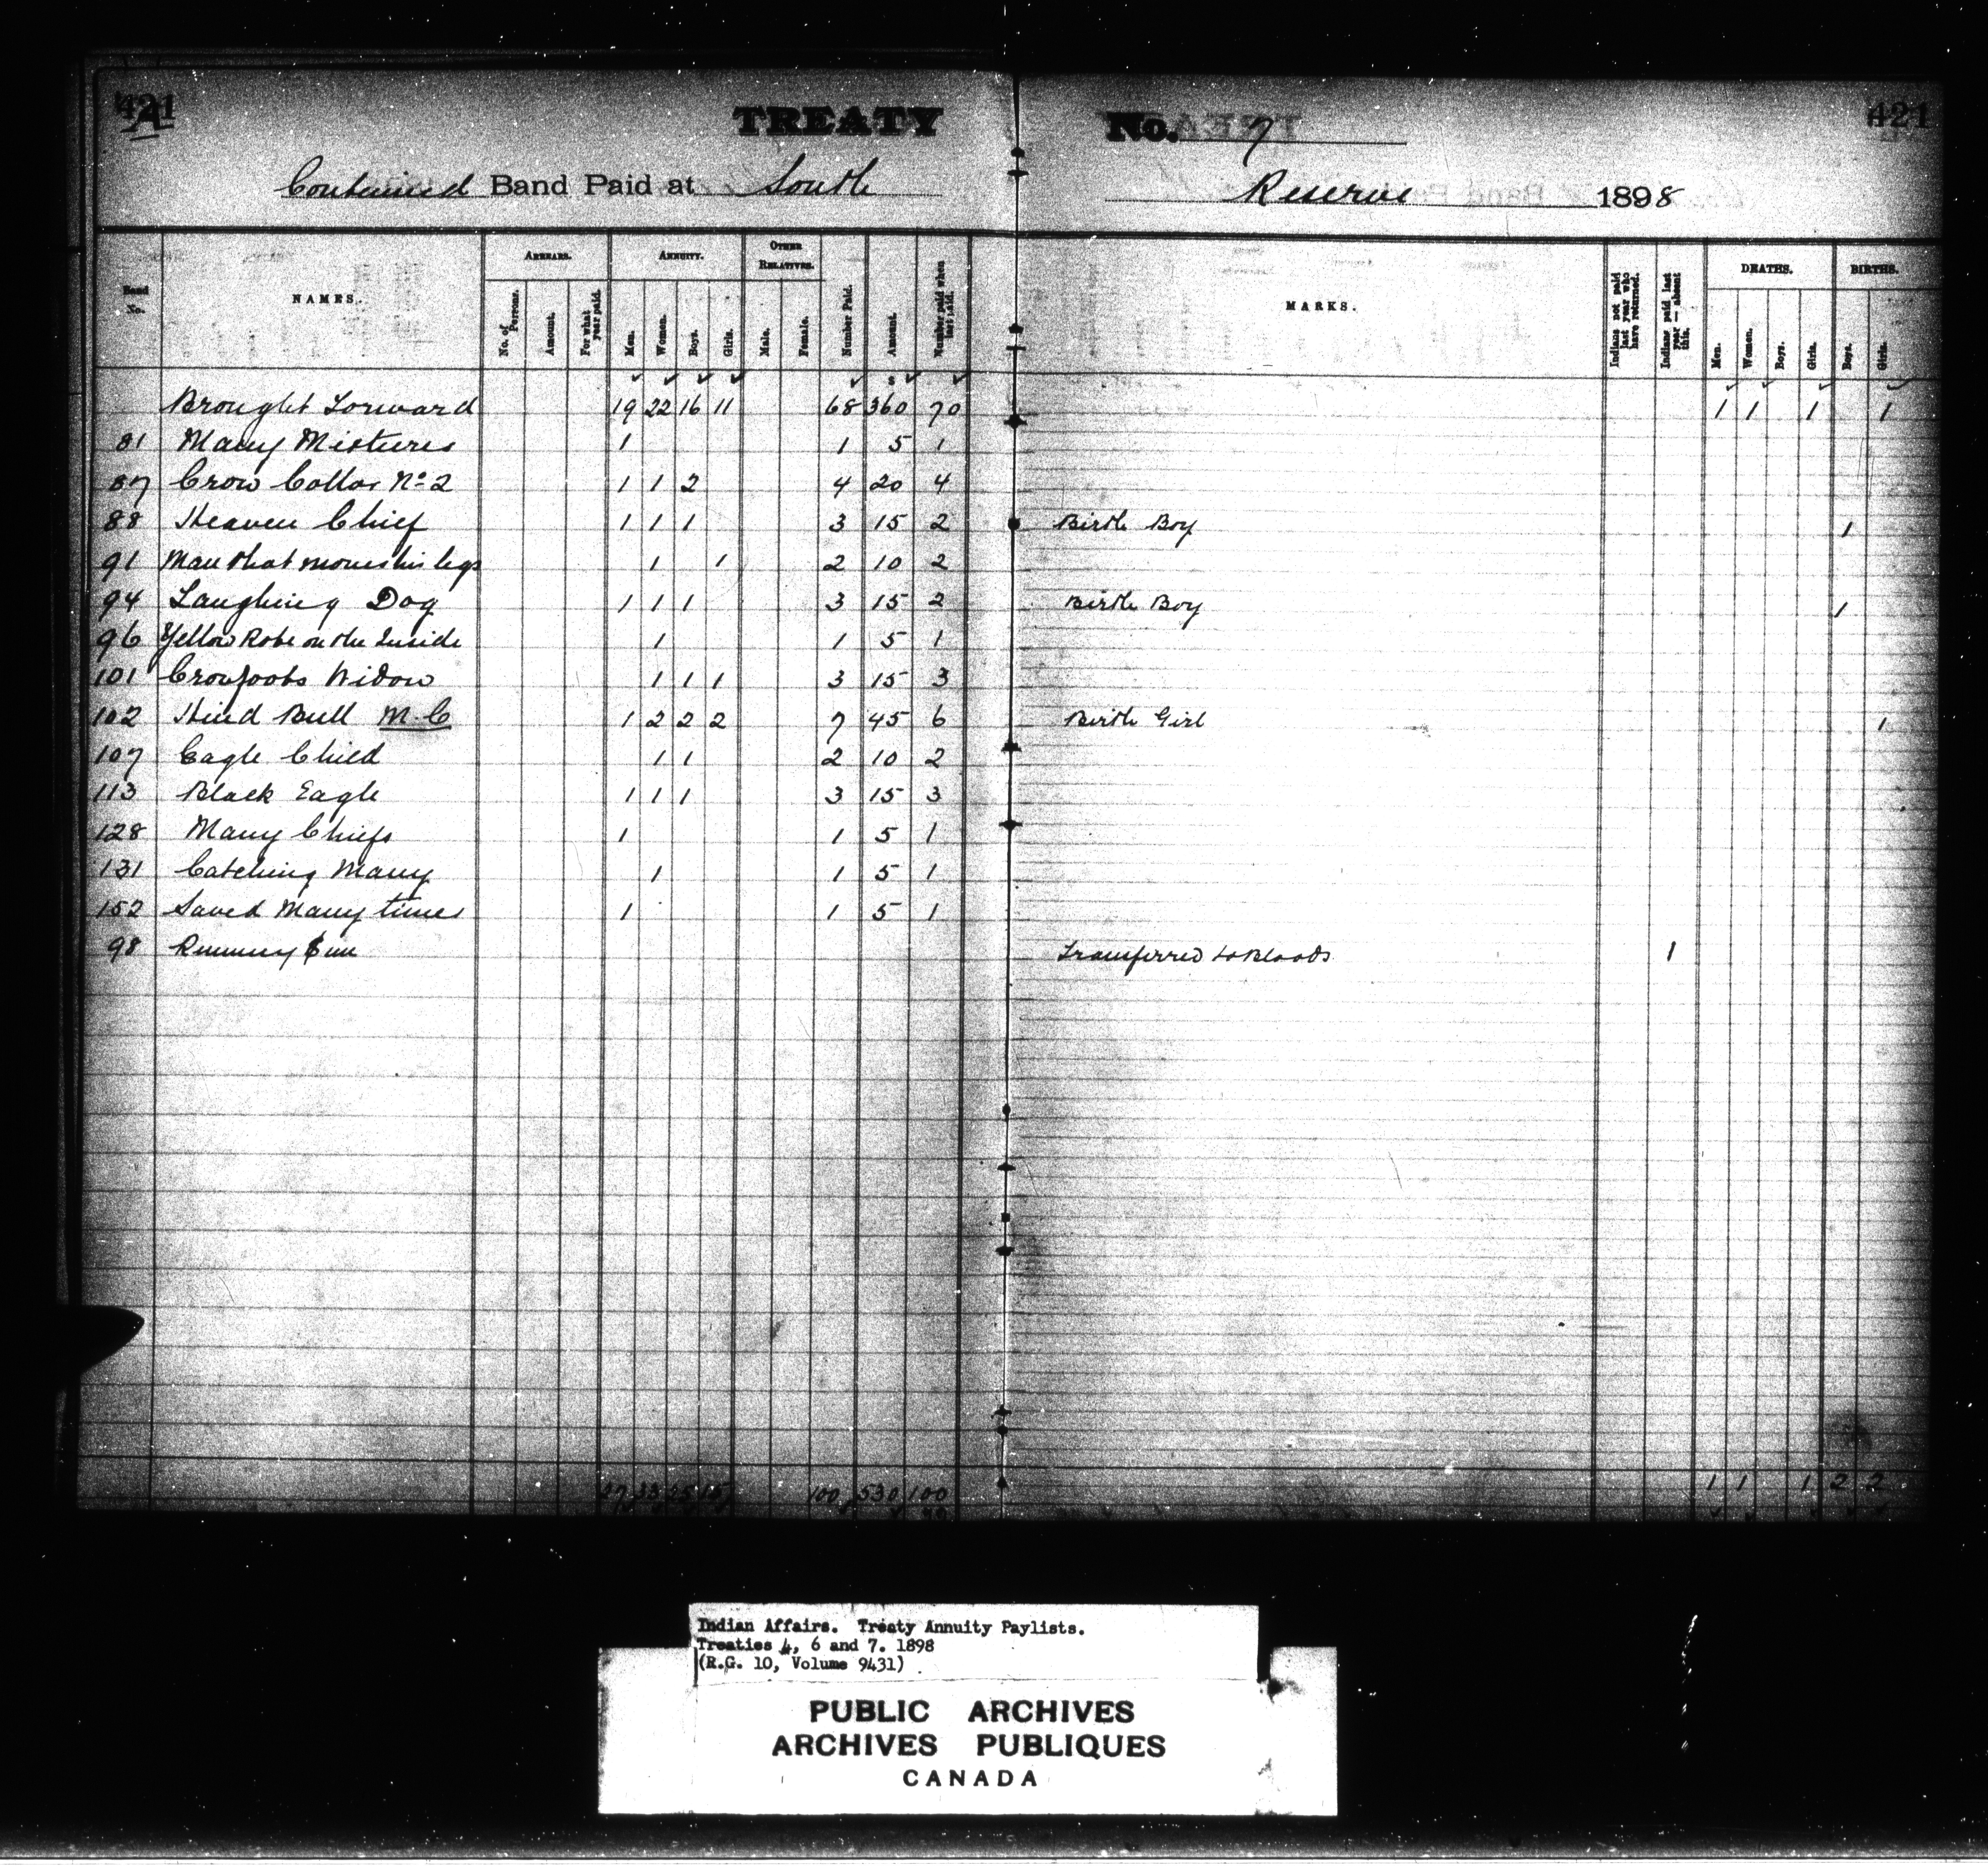 421 A TREATY No. 7 421
Continued Band Paid at South Reserve 1898
Band No. NAMES. ARREARS. No. of Persons. Amount. For what year paid. ANNUITY. Men. Women. Boys. Girls. OTHER RELATIVES. Male. Female. Number Paid. Amount. Number paid when last paid. MARKS. Indians not paid last year who have returned. Indians paid last year — absent this. DEATHS. Men. Women. Boys. Girls. BIRTHS. Boys. Girls.
Brought Forward 19 22 16 11 68 360 70 1 1 1 1
81 Many Mixtures 1 1 5 1
87 Crow Collar No 2 1 1 2 4 20 4
88 Heaven Chief 1 1 1 3 15 2 Birth Boy 1
91 Man that moves his legs 1 1 2 10 2
94 Laughing Dog 1 1 1 3 15 2 Birth Boy 1
96 Yellow Robe on the Inside 1 1 5 1
101 Crowfoots Widow 1 1 1 3 15 3
102 Hind Bull M.C 1 2 2 2 7 45 6 Birth Girl 1
107 Eagle Child 1 1 2 10 2
113 Black Eagle 1 1 1 3 15 3
128 Many Chiefs 1 1 5 1
131 Catching Many 1 1 5 1
152 Saved Many times 1 1 5 1
98 Running Transferred to Bloods 1
27 33 25 15 100 530 100 1 1 1 2 2
Indian Affairs. Treaty Annuity Paylists.
Treaties 4, 6 and 7. 1898
(R.G. 10, Volume 9431)
PUBLIC ARCHIVES
ARCHIVES PUBLIQUES
CANADA